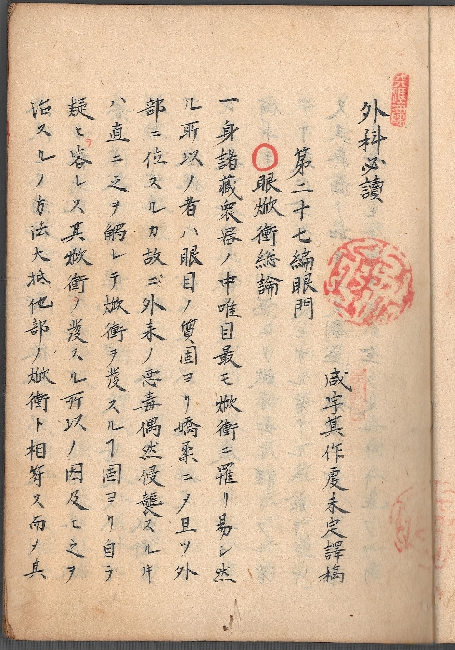 外科必讀
咸寧箕作虔未定譯稿
第二十七編眼門
眼焮衝総論
一身諸藏衆器ノ中唯目最モ焮衝ニ罹リ易シ然
ル所以ノ者ハ眼目ノ質固ヨリ嬌柔ニ〆且ツ外
部ニ位スルカ故ニ外来ノ悪毒偶然侵襲スルキ
ハ直ニ之ヲ觸レテ焮衝ヲ發スルヿ固ヨリ自ラ
疑ヒ容レス其焮衝ノ發スル所以ノ因及ヒ之ヲ
治スルノ方法大抵他部ノ焮衝ト相符ス而〆其